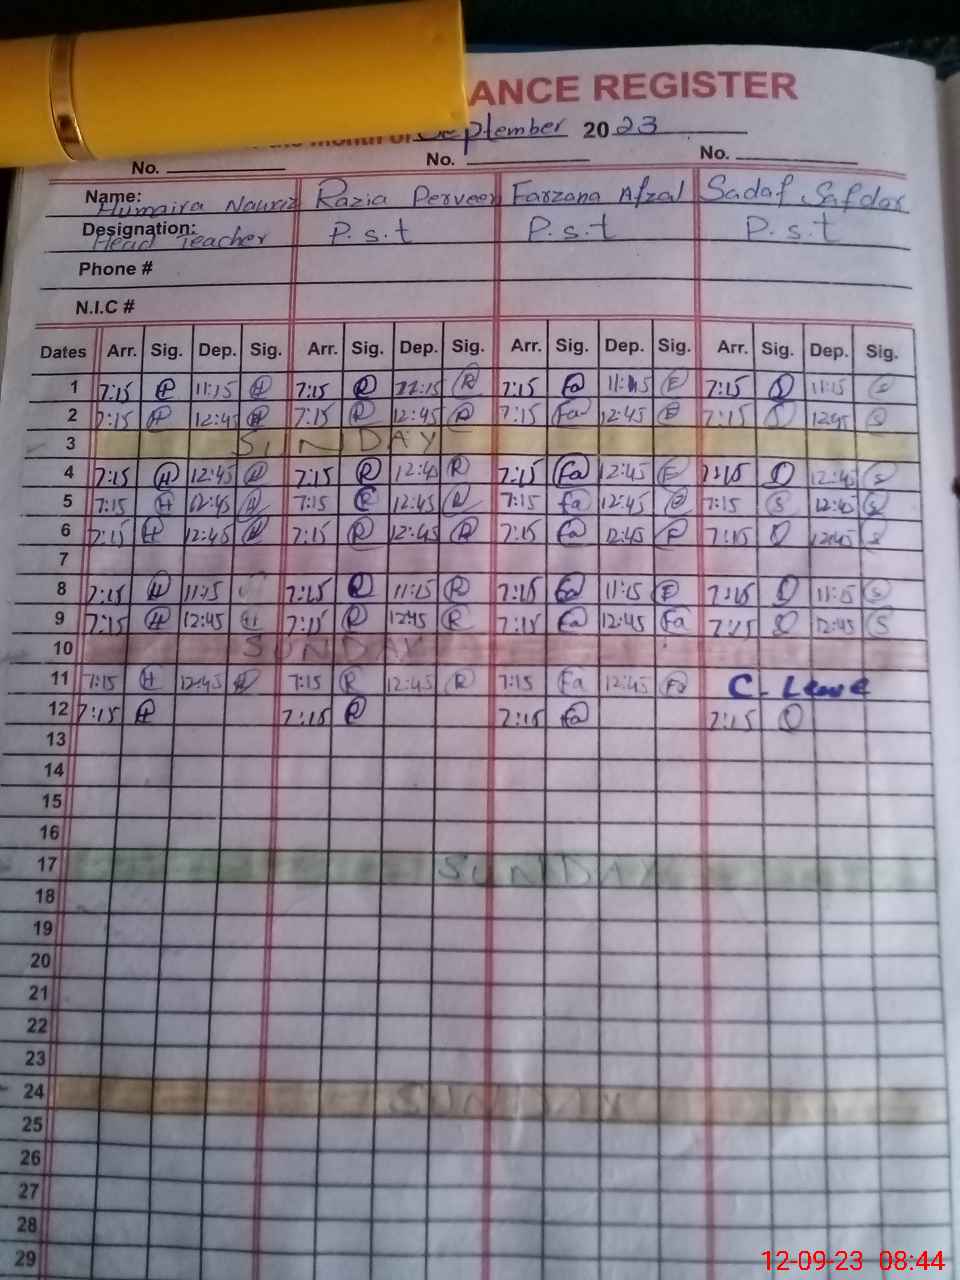 ANCE REGISTER
September 2023
No. No. No.
Name: Humaira Nauriz Razia Perveen Farzana Afzal Sadaf Safdar
Designation: Head Teacher P.s.t P.s.t P.s.t
Phone #
N.I.C #
Dates Arr. Sig. Dep. Sig. Arr. Sig. Dep. Sig. Arr. Sig. Dep. Sig. Arr. Sig. Dep. Sig.
1 7:15 H 11:15 H 7:15 R 11:15 R 7:15 Fa 11:15 F 7:15 S 11:15 S
2 7:15 H 12:45 H 7:15 R 12:45 R 7:15 Fa 12:45 F 7:15 S 12:45 S
3 SUNDAY
4 7:15 H 12:45 H 7:15 R 12:45 R 7:15 Fa 12:45 F 7:15 S 12:45 S
5 7:15 H 12:45 H 7:15 R 12:45 R 7:15 Fa 12:45 F 7:15 S 12:45 S
6 7:15 H 12:45 H 7:15 R 12:45 R 7:15 Fa 12:45 F 7:15 S 12:45 S
7
8 7:15 H 11:15 7:15 R 11:15 R 7:15 Fa 11:15 F 7:15 S 11:15 S
9 7:15 H 12:45 H 7:15 R 12:45 R 7:15 Fa 12:45 Fa 7:15 S 12:45 S
10 SUNDAY
11 7:15 H 12:45 H 7:15 R 12:45 R 7:15 Fa 12:45 Fa C. Leave
12 7:15 H 7:15 R 7:15 Fa 7:15 S
13
14
15
16
17 SUNDAY
18
19
20
21
22
23
24 SUNDAY
25
26
27
28
29
12-09-23 08:44